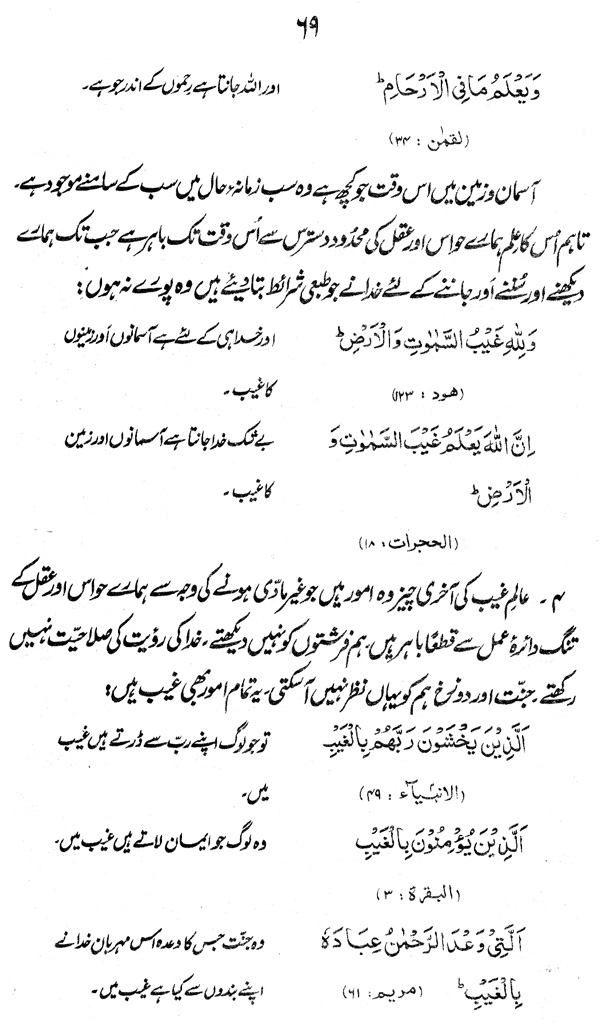 ۶۹
وَيَعْلَمُ مَا فِى الْاَرْحَامِ ؕ اور اللہ جانتا ہے رحموں کے اندر جو ہے۔
(لقمٰن : ۳۴)
آسمان و زمین میں اس وقت جو کچھ ہے وہ سب زمانۂ حال میں سب کے سامنے موجود ہے۔
تاہم اُس کا علم ہمارے حواس اور عقل کی محدود دسترس سے اُس وقت تک باہر ہے جب تک ہمارے
دیکھنے اور سُننے اور جاننے کے لئے خدا نے جو طبعی شرائط بتا دیئے ہیں وہ پورے نہ ہوں:
وَلِلّٰهِ غَيْبُ السَّمٰوٰتِ وَالْاَرْضِ ؕ اور خدا ہی کے لئے ہے آسمانوں اور زمینوں
(هود : ۱۲۳) کا غیب۔
اِنَّ اللّٰهَ يَعْلَمُ غَيْبَ السَّمٰوٰتِ وَ بے شک خدا جانتا ہے آسمانوں اور زمین
الْاَرْضِ ؕ کا غیب۔
(الحجرات : ۱۸)
۴۔ عالمِ غیب کی آخری چیز وہ امور ہیں جو غیر مادّی ہونے کی وجہ سے ہمارے حواس اور عقل کے
تنگ دائرۂ عمل سے قطعًا باہر ہیں۔ ہم فرشتوں کو نہیں دیکھتے۔ خدا کی رؤیت کی صلاحیّت نہیں
رکھتے۔ جنّت اور دوزخ ہم کو یہاں نظر نہیں آسکتی۔ یہ تمام امور بھی غیب ہیں:
الَّذِيْنَ يَخْشَوْنَ رَبَّهُمْ بِالْغَيْبِ تو جو لوگ اپنے ربّ سے ڈرتے ہیں غیب
(الانبیآء : ۴۹) میں۔
الَّذِيْنَ يُؤْمِنُوْنَ بِالْغَيْبِ وہ لوگ جو ایمان لاتے ہیں غیب میں۔
(البقرة : ۳)
الَّتِىْ وَعَدَ الرَّحْمٰنُ عِبَادَهٗ وہ جنّت جس کا وعدہ اس مہربان خدا نے
بِالْغَيْبِ ؕ (مریم : ۶۱) اپنے بندوں سے کیا ہے غیب میں۔